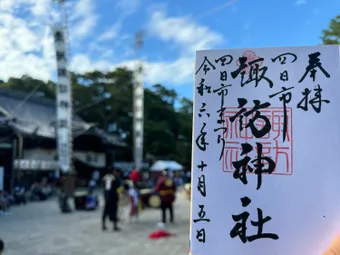 奉拝
四日市
諏訪神社
四日市まつり
令和六年十月五日